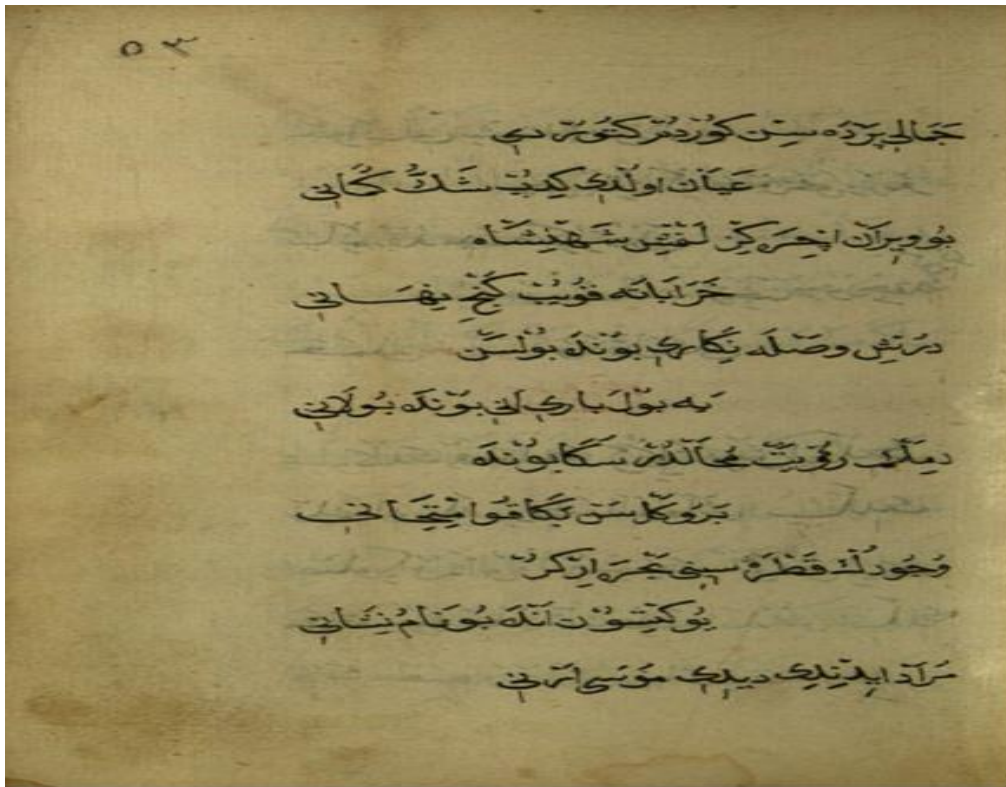 ٥٣
جَمَالِي پَرْدَه سِنْ كُورْدُمْ كُتُورْدِي
عَيَان اولْدِي كِدُبْ شَكُّ كُمَانِي
بُو وِيرَان اِچِرَه كِنْ شَهِنْشَاه
خَرَابَاتَه قُويُبْ كَنْجِ نِهَانِي
وَصْلَه نِكَارِي بُونْدَه بُولْسَنْ
نَه بُولْ بَارِي اَنِي بُونْدَه بُولَانِي
دِمَكْ رُؤْيَتْ مُحَالْدُرْ سَكَا بُونْدَه
بَرُو كَلْ سَنْ بَكَا قُو اِمْتِحَانِي
وُجُودُكْ قَطْرَه سِينِي بَحْرَه اِرْكُرْ
يُو كِتْسُونْ اَنْدَه بُو نَامُ نِشَانِي
مُرَاد اِيدِنْدِي دِيدِي مُوسَى اَرْنِي